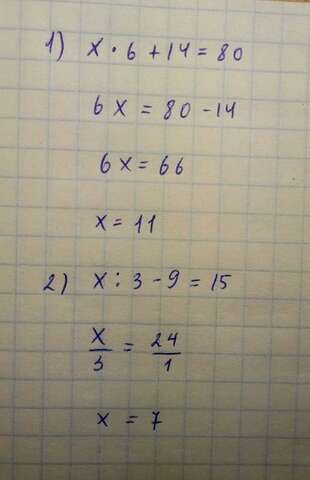 1) x · 6 + 14 = 80
6x = 80 - 14
6x = 66
x = 11
2) x : 3 - 9 = 15
x/3 = 24/1
x = 7